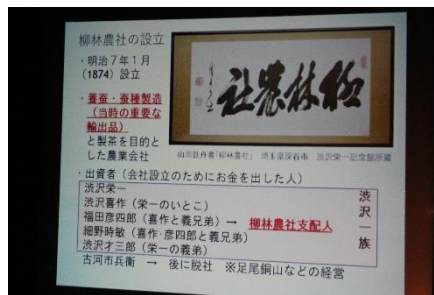 柳林農社の設立
・明治7年1月
(1874) 設立
社農林柳
・養蚕・蚕種製造
(当時の重要な
輸出品)
と製茶を目的と
した農業会社
山岡鉄舟書「柳林農社」 埼玉県深谷市 渋沢栄一記念館所蔵
・出資者(会社設立のためにお金を出した人)
渋沢栄一
渋沢喜作(栄一のいとこ)
福田彦四郎(喜作と義兄弟)→ 柳林農社支配人
細野時敏(喜作・彦四郎と義兄弟)
渋沢才三郎(栄一の義弟)
渋沢一族
古河市兵衛 → 後に脱社 ※足尾銅山などの経営